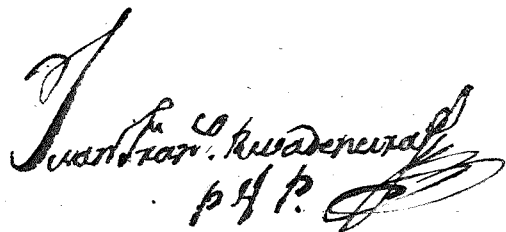 Juan Fran.co Rivadeneira